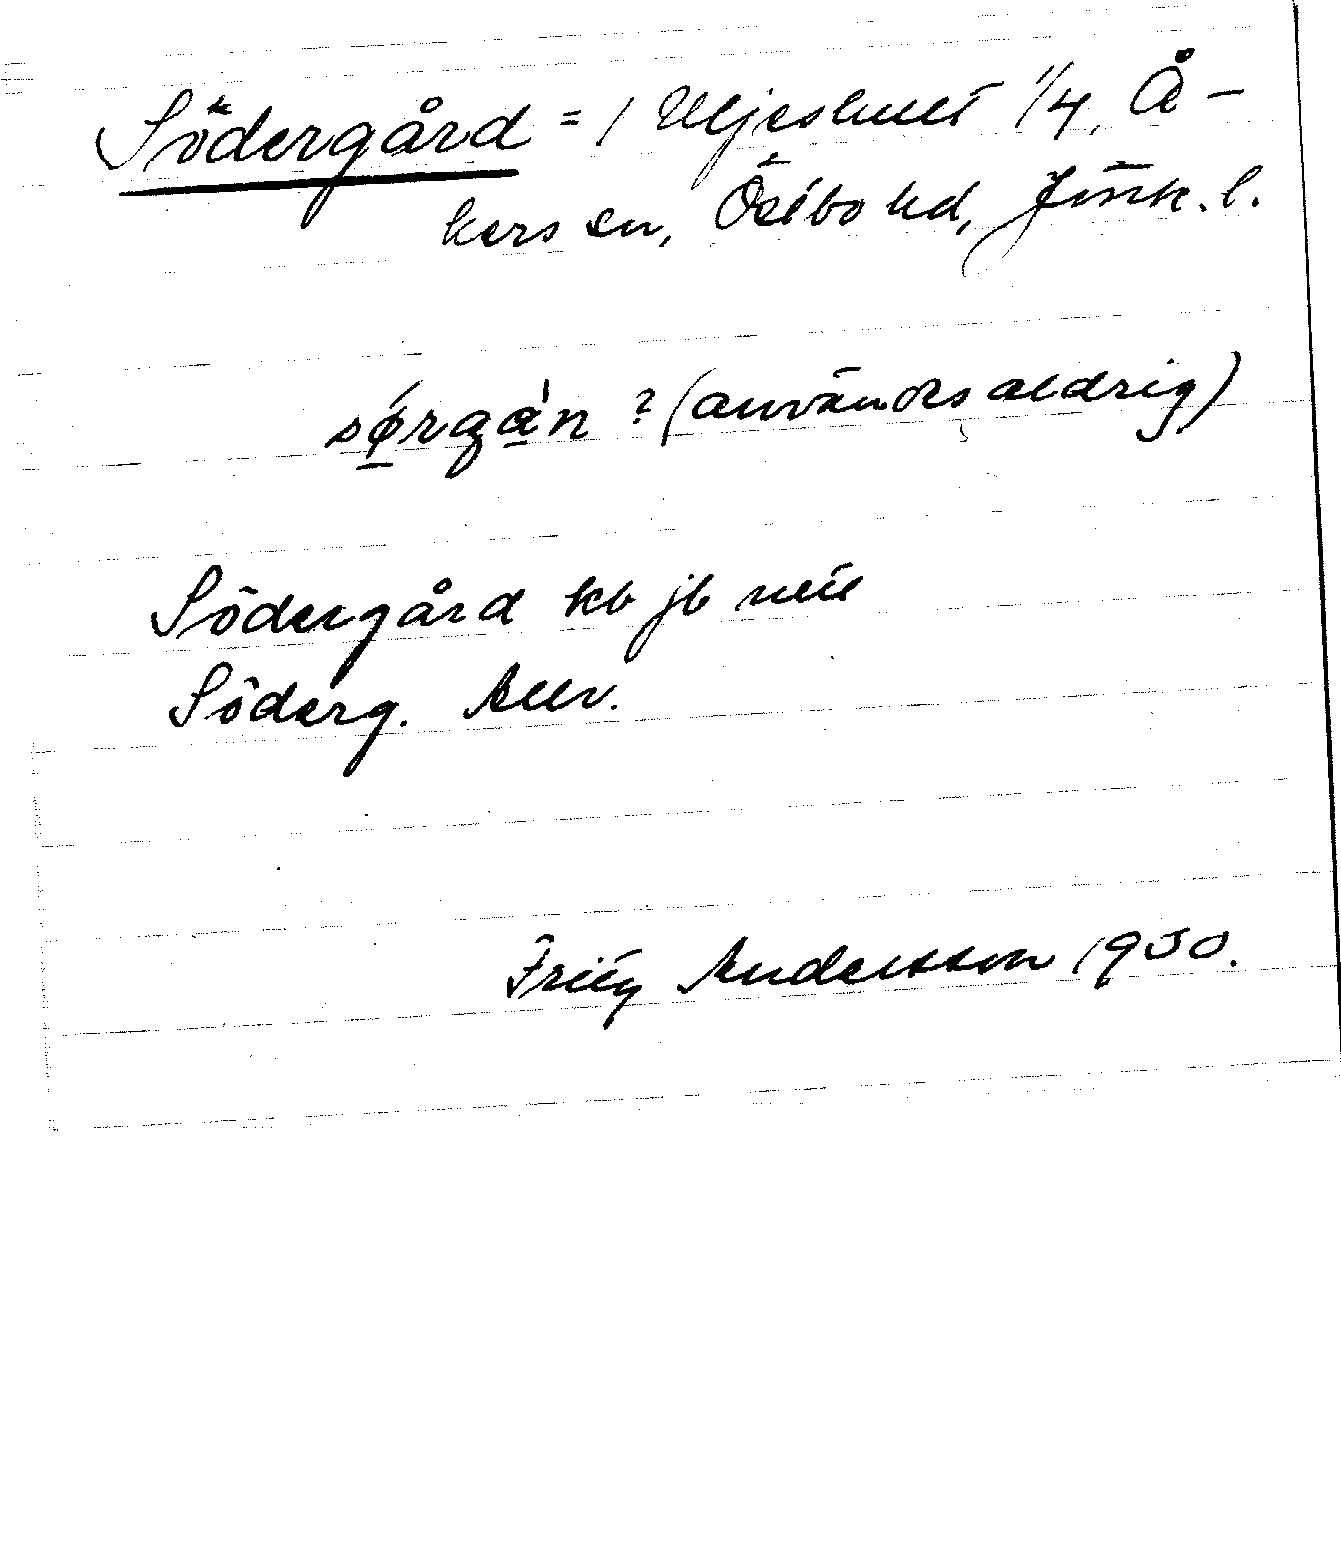 Södergård = 1 Uljeshult 1/4, Å-
kers sn, Östbo hd, Jönk. l.
sǿrgán ? (användes aldrig)
Södergård kb jb
Söderg. Allv.
Fritz Andersson 1930.